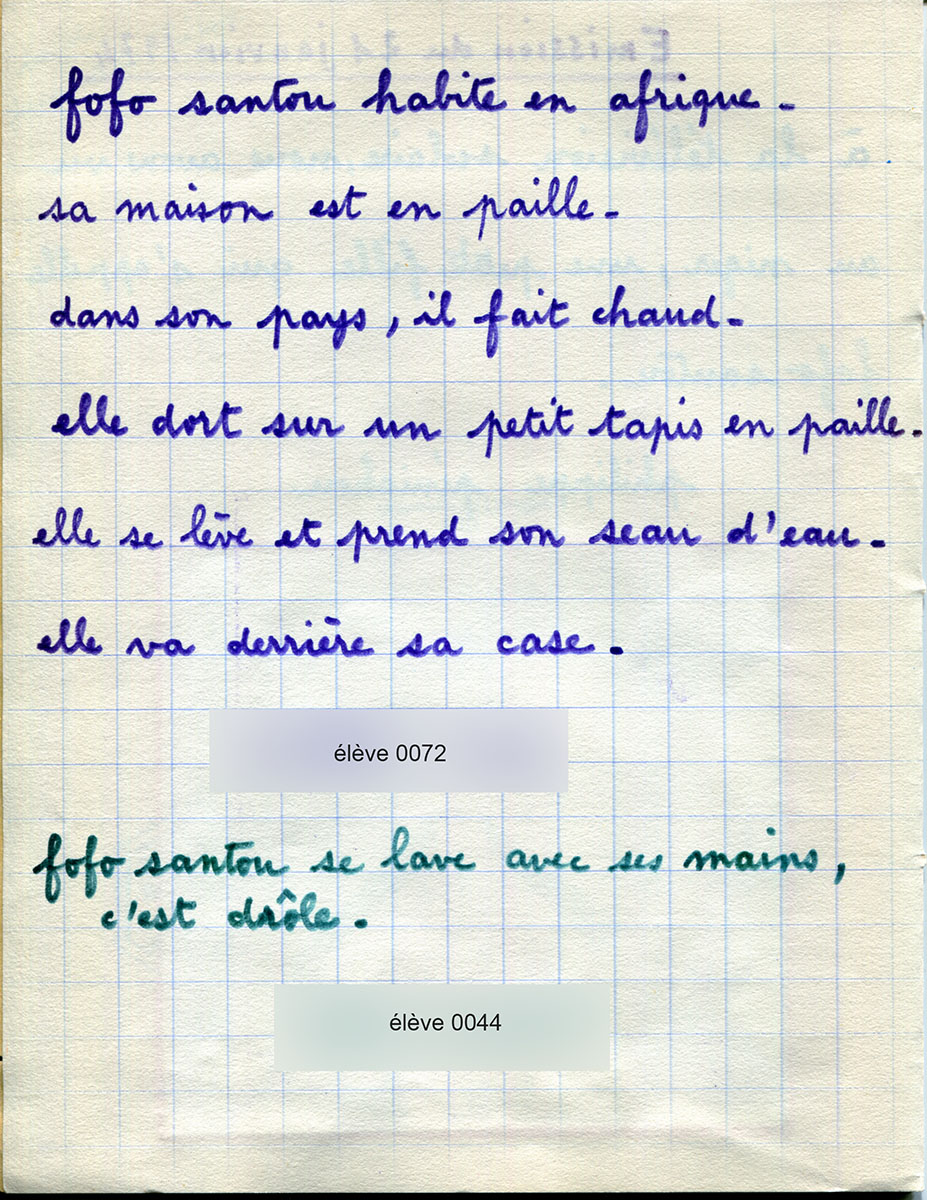 fofo santou habite en afrique.
sa maison est en paille.
dans son pays, il fait chaud.
elle dort sur un petit tapis en paille.
elle se lève et prend son seau d'eau.
elle va derrière sa case.
élève 0072
fofo santou se lave avec ses mains,
c'est drôle.
élève 0044